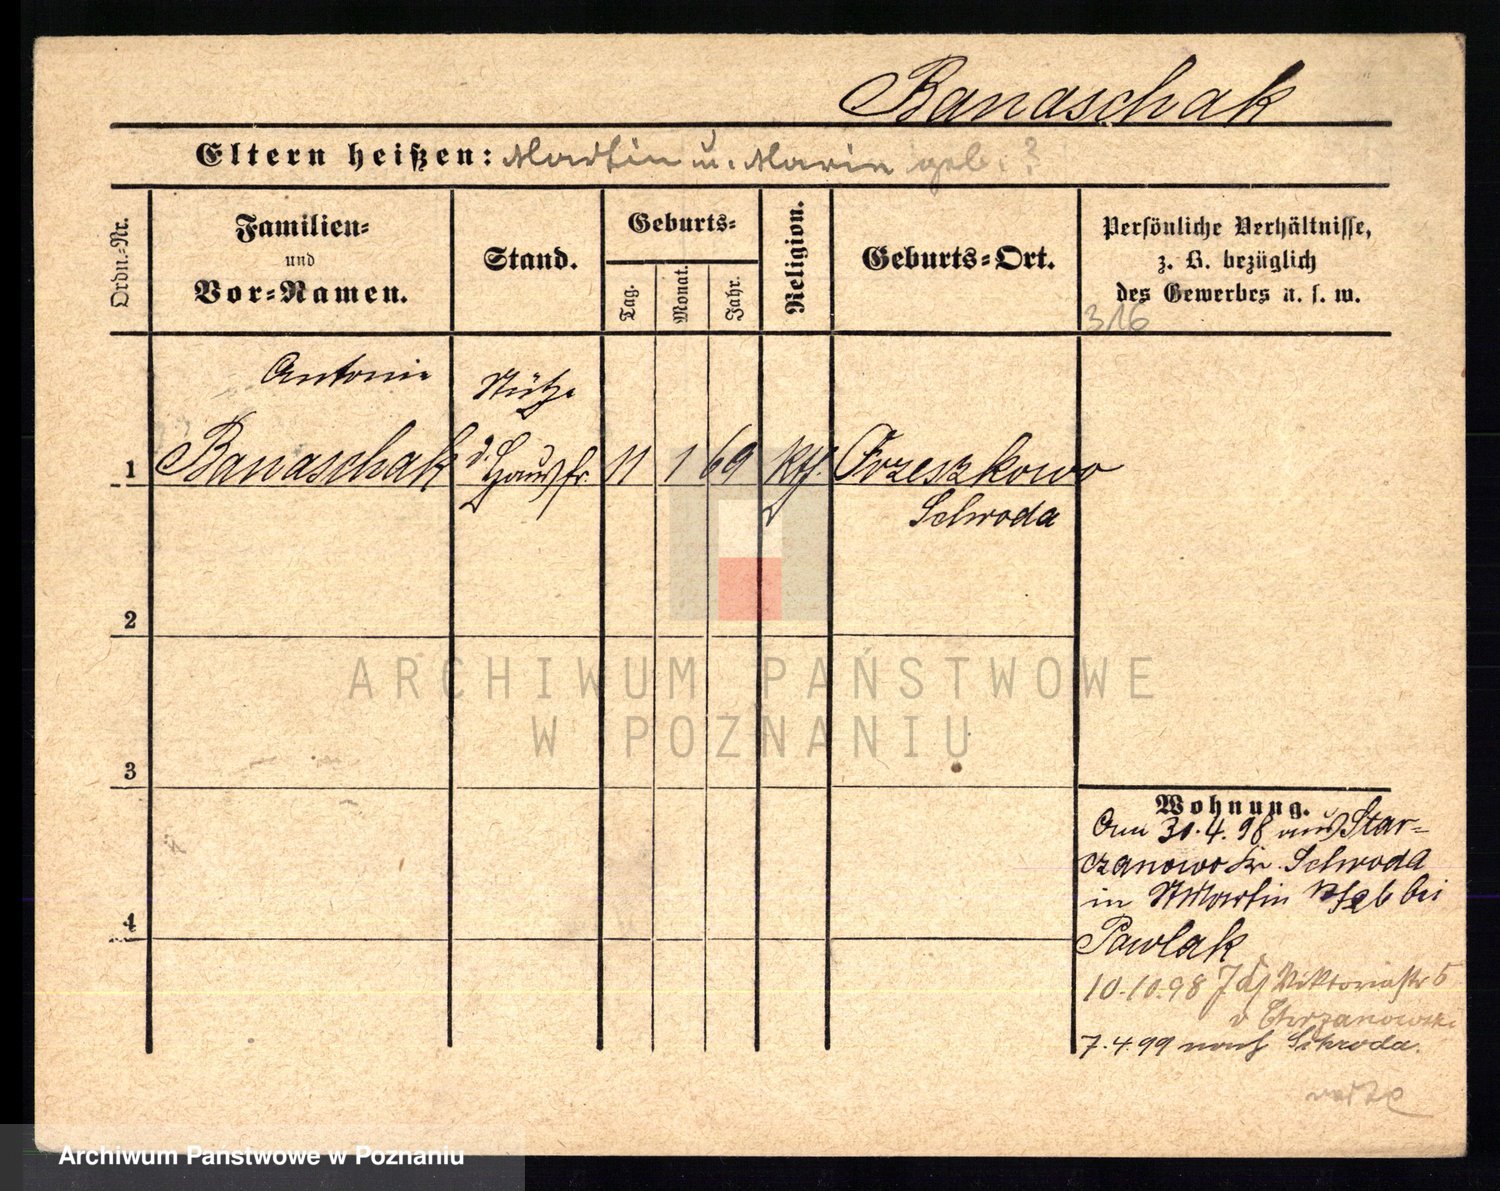 Banaschak
Eltern heißen: Martin u. Marie geb. ?
Ordn.-Nr.
Familien-
und
Vor-Namen.
Stand.
Geburts-
Tag.
Monat.
Jahr.
Religion.
Geburts-Ort.
Persönliche Verhältnisse,
z. B. bezüglich
des Gewerbes u. s. w.
316
Antonie
Stütze
1 Banaschak d. Hausfr. 11 1 69 kth.
Schroda
2
3
4
ARCHIWUM PAŃSTWOWE
W POZNANIU
Wohnung.
Am 30.4.98 aus Star-
czanowo Kr. Schroda
in St Martin bei
Pawlak
10.10.98 Viktoriastr
v Chrzanowski
7.4.99 nach Schroda.
Archiwum Państwowe w Poznaniu